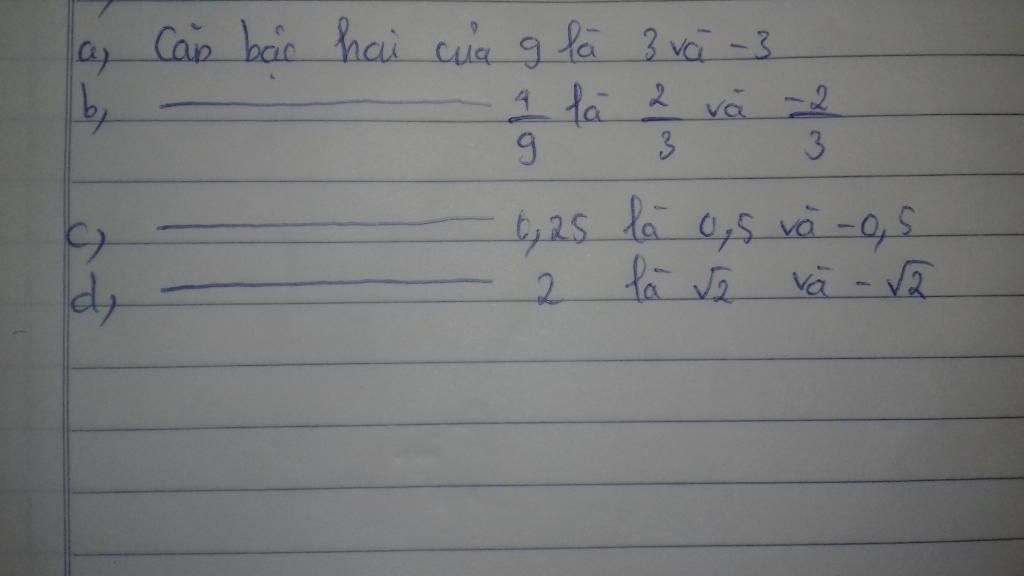 a, Căn bậc hai của 9 là 3 và -3
b, ——— 4/9 là 2/3 và -2/3
c, ——— 0,25 là 0,5 và -0,5
d, ——— 2 là √2 và -√2